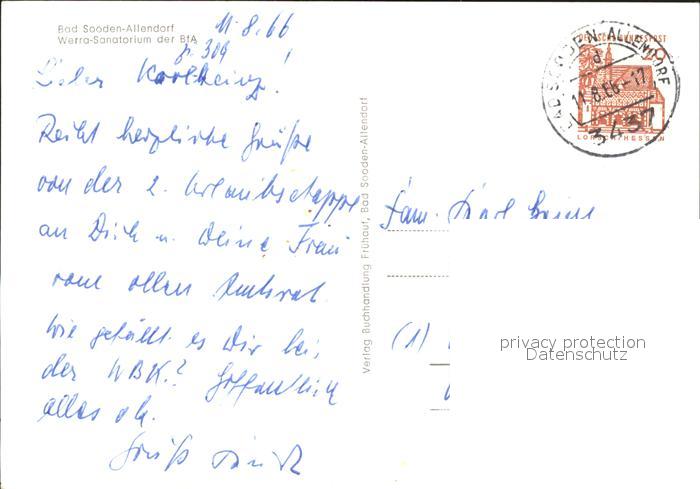 Bad Sooden-Allendorf
Werra-Sanatorium der BfA
11.8.66
Lieber Karlheinz!
Recht herzliche Grüße
von der 2. Urlaubsetappe
an Dich u. Deine Frau
vom alten
Wie gefällt es Dir bei
der WBK? Hoffentlich
alles ok.
Gruß
Verlag Buchhandlung Frühauf, Bad Sooden-Allendorf
DEUTSCHE BUNDESPOST
LORSCH/HESSEN
BAD SOODEN-ALLENDORF
d
11.8.66-17
3437
Fam. Karl Heinz
(1)
privacy protection
Datenschutz